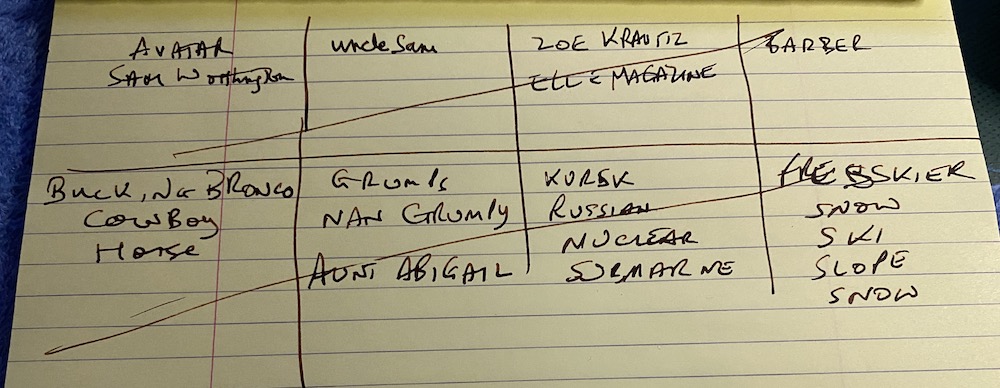 AVATAR
SAM Worthington
Uncle Sam
ZOE KRAVTIZ
ELLE MAGAZINE
BARBER
BUCKING BRONCO
COWBOY
HORSE
GRUMPS
NAN GRUMPY
AUNT ABIGAIL
KURSK
RUSSIAN
NUCLEAR
SUBMARINE
SKIER
SNOW
SKI
SLOPE
SNOW